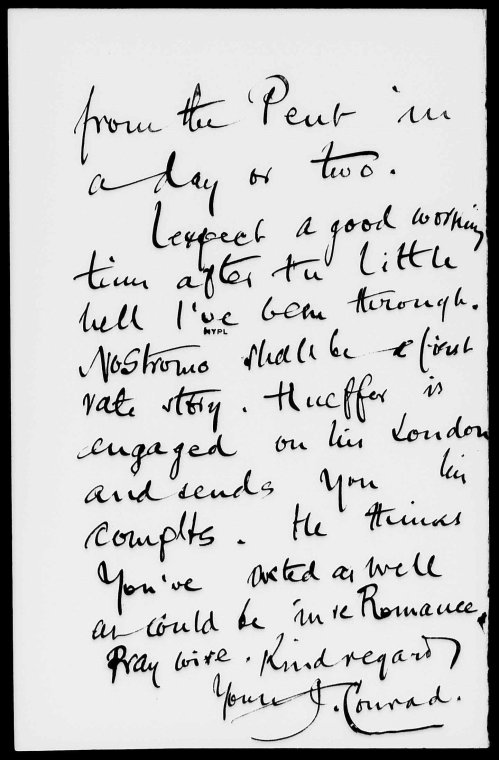 from the Pent in
a day or two.
I expect a good working
time after the little
hell I've been through.
NYPL
Nostromo shall be a first
rate story. Hueffer is
engaged on his London
and sends you his
complts. He thinks
You've acted as well
as could be in re Romance.
Pray wire. Kind regards
Yours J. Conrad.